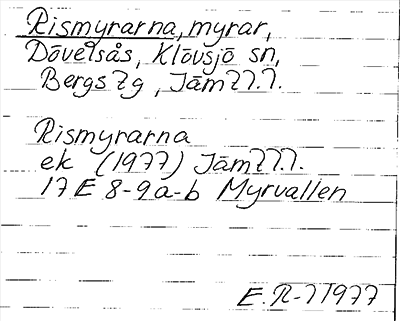 Rismyrarna, myrar,
Dövelsås, Klövsjö sn,
Bergs tg, Jämtl.
Rismyrarna
ek (1977) Jämtl.
17 E 8-9 a-b Myrvallen
E. R-n 1977